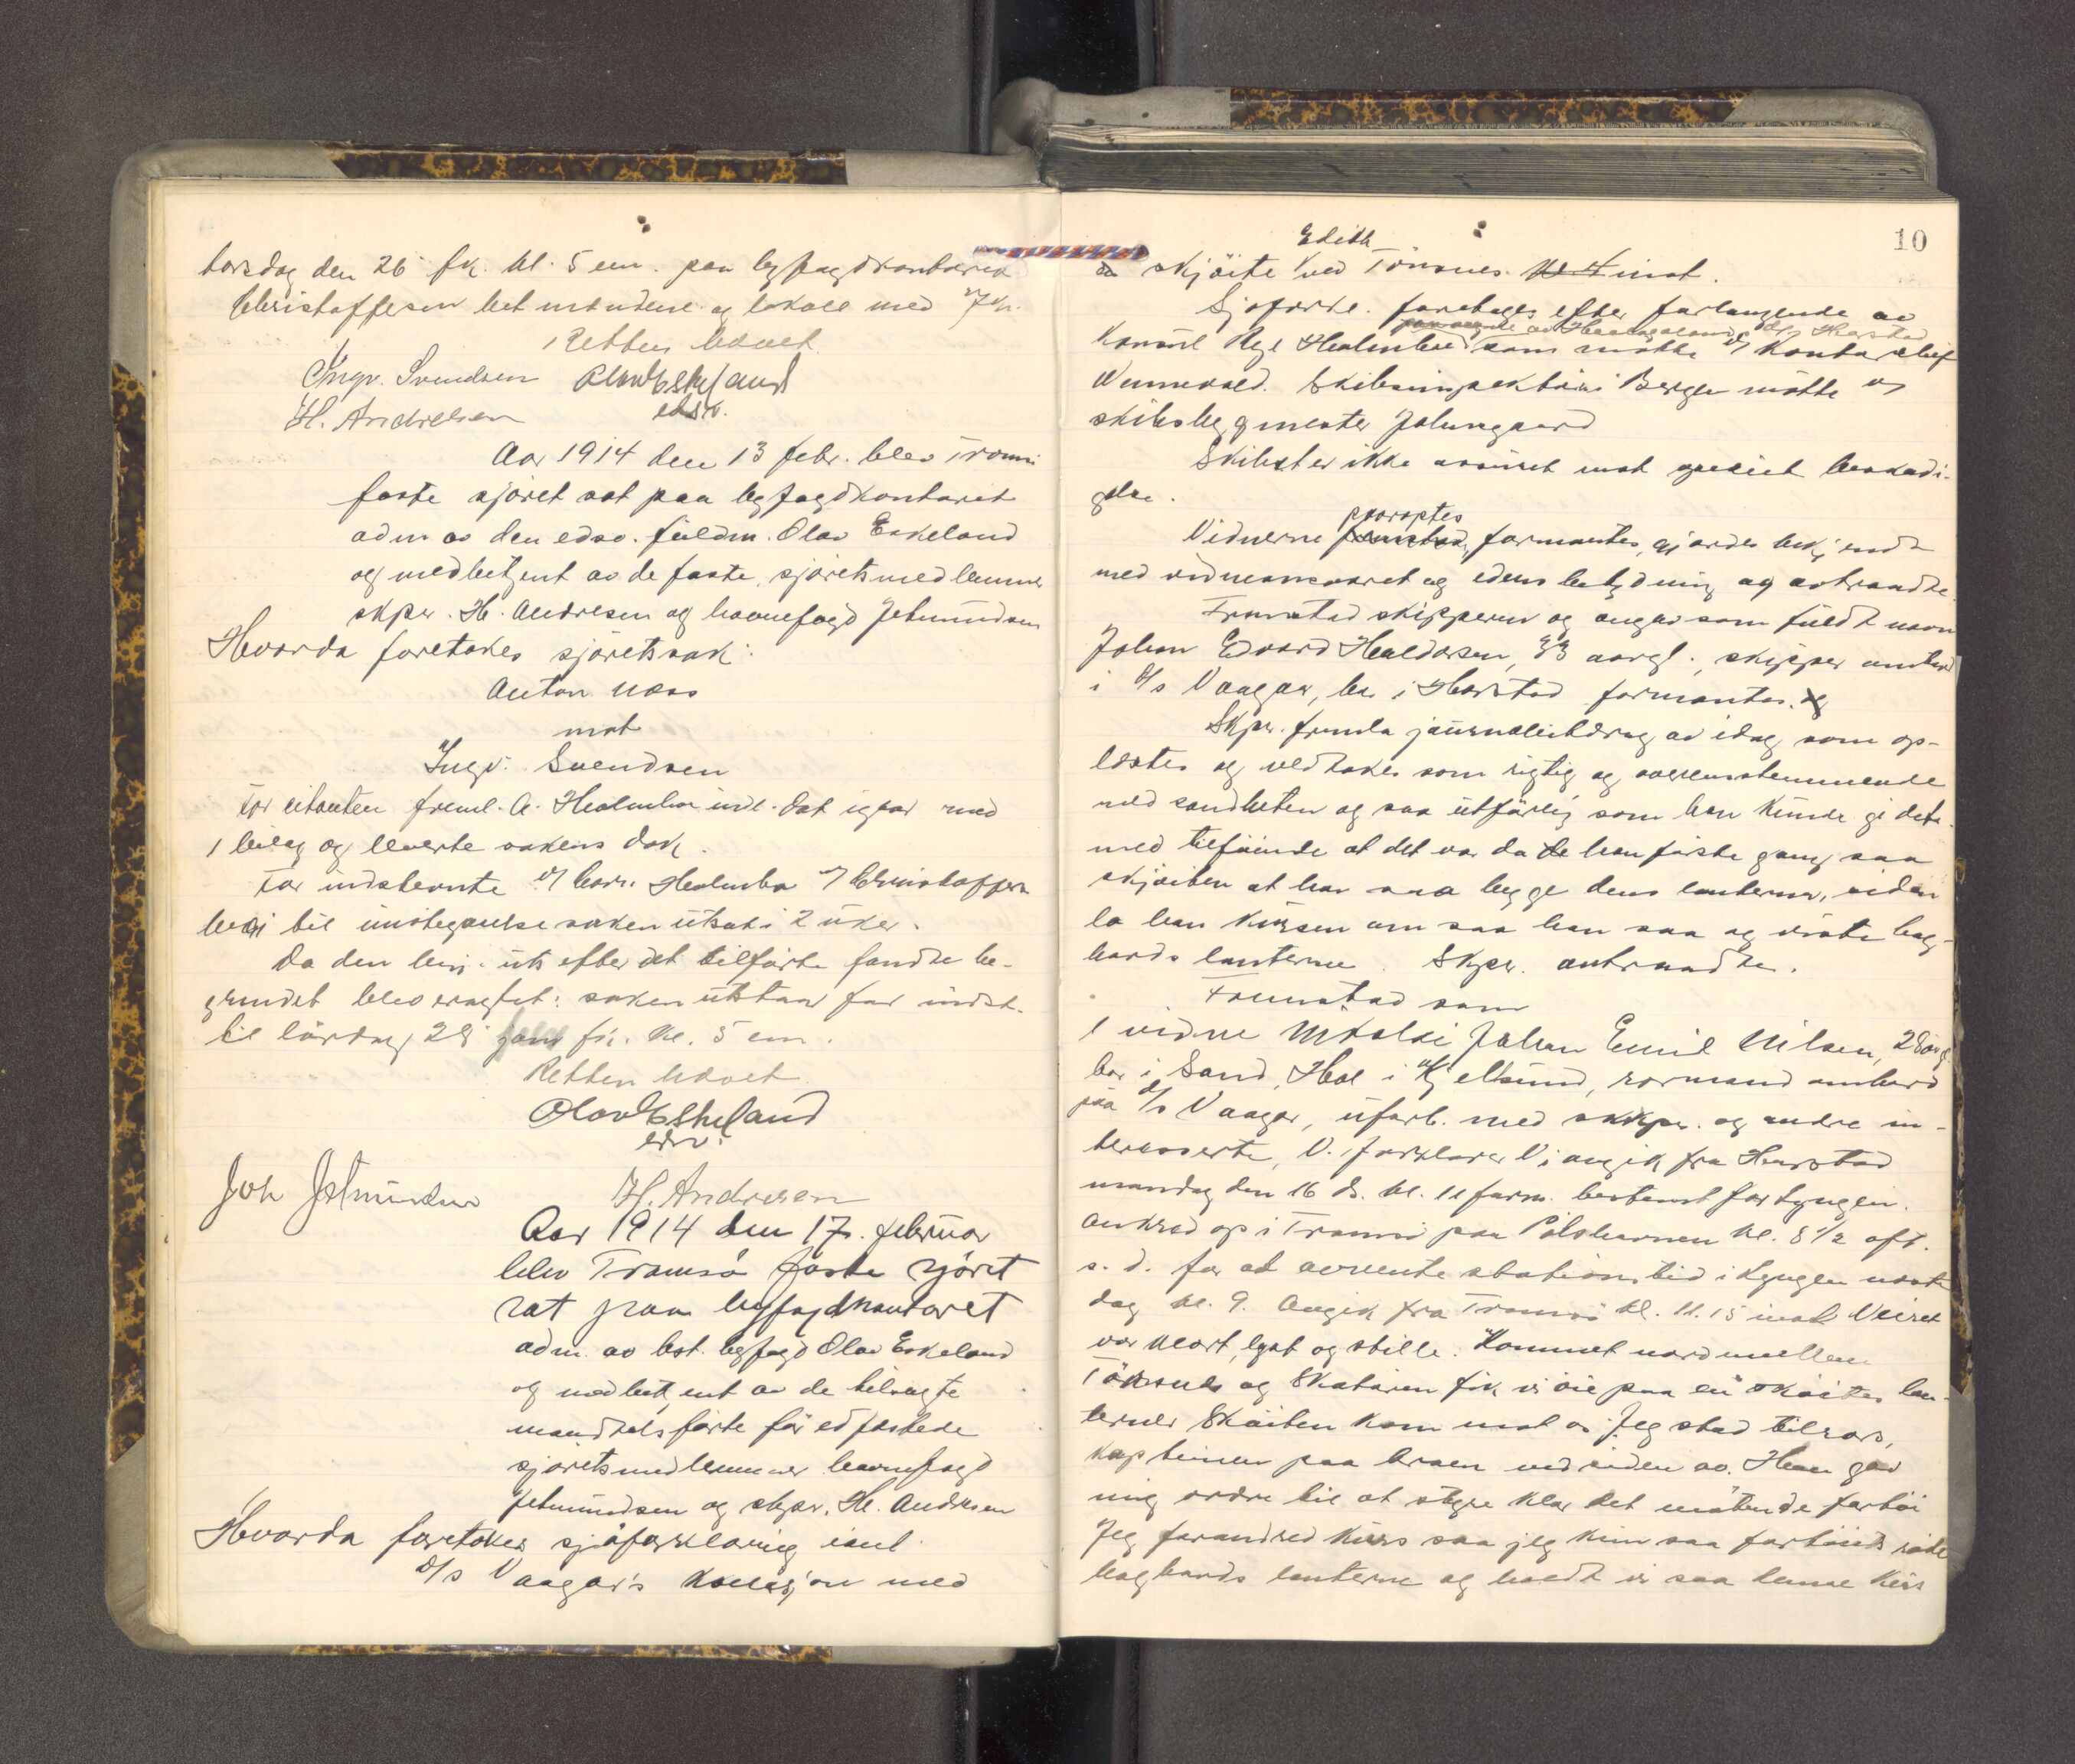 torsdag den 26 fk. kl. 5 em. paa byfogdkontoret
Christoffersen bet. møtedene og lokale med 7 kr.
Retten hævet
Ingv. Svendsen Olav Eskeland
H. Andresen edsv.
Aar 1914 den 13 febr. blev Tromsø
faste sjøret sat paa byfogdkontoret
adm av den edsv. fuldm. Olav Eskeland
og medbetjent av de faste sjøretsmedlemmer
skpr. H. Andresen og havnefogd Jetmundsen
Hvorda foretokes sjøretssak:
Anton Moss
mot
Ingv. Svendsen
For citanten freml. A. Holmboe indl. dat igaar med
1 bilag og leverte sakens dok.
For indstevnte Christoffersen
begj til imøtegaaelse saken utsat i 2 uker.
Da den begj. uts efter det tilførte fandtes be-
grundet blev eragtet: saken utstaar for indst.
til lørdag 28 fk. kl. 5 em.
Retten hævet
Olav Eskeland
edsv.
Joh Jetmundsen H. Andresen
Aar 1914 den 17. februar
blev Tromsø faste sjøret
sat paa byfogdkontoret
adm. av kst. byfogd Olav Eskeland
og medbetjent av de tilsagte
mandtalsførte før edfæstede
sjøretsmedlemmer havnefogd
Jetmundsen og skpr. H. Andresen
Hvorda foretokes sjøforklaring i anl.
D/s Vaagar's kollisjon med
10
Edith
skjøite ved Tønsnes inat.
Sjøforkl. foretages efter forlangende av
Konsul Holmboe som møtte v/ Kontorchef
Wennevold. Skibsinspektør Berge møtte og
skibsbygmester Johnsgaard
Skibet er ikke assuret mot speciel beskadi-
gelse.
paaroptes
Vidnerne formantes, gjordes bekjendt
med vidneansvaret og edens betydning og avtraadte.
Fremstod skipperen og angav som fuldt navn
Johan Edvard Haldorsen, 33 aargl., skipper ombord
i D/s Vaagar, bor i Harstad formantes.
Skpr. fremla journalutdrag av idag, som op-
læstes og vedtokes som rigtig og overensstemmende
med sandheten og saa utførlig som han kunde gi dette
med tilføiende at det var da han første gang saa
skjøiten at han saa begge dens lanterner, siden
la han kursen om saa han saa og røde bag-
bords lanterne. Skpr. avtraadte.
Fremstod som
1 vidne Johan Emil Nilsen, 28 aargl.
bor i Sand, Hol i Kjelsund, rormand ombord
paa D/s Vaagar, ubesl. med skpr. og andre in-
teresserte, V. forklarer Vi avgik fra Harstad
mandag den 16 ds. kl. 11 form. bestemt for Lyngen.
Ankred op i Tromsø paa Polshavnen kl. 8 1/2 aft.
s. d. for at avvente stationstid i Lyngen næste
dag kl. 9. Avgik fra Tromsø kl. 11.15 inat Veiret
var klart, lyst og stille. Kommet nord mellem
Tønsnes og Skataren fik vi øie paa en skøites lan-
terner Skøiten kom mot os. Jeg stod tilrors,
kapteinen paa broen ved siden av. Han gav
mig ordre til at styre klar det møtende fartøi
Jeg forandred kurs saa jeg kun saa fartøiets røde
bagbords lanterne og holdt vi saa denne kurs